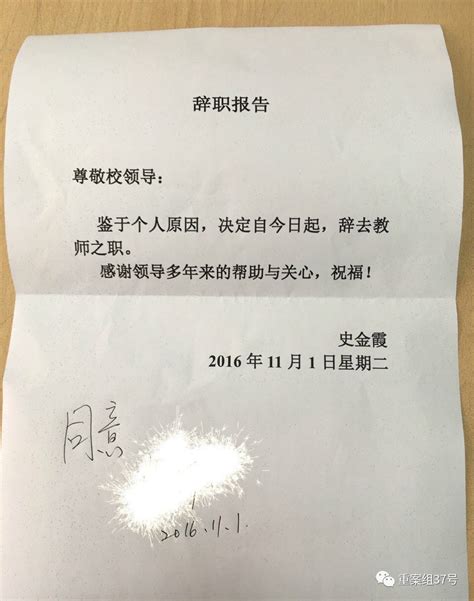 辞职报告
尊敬校领导：
鉴于个人原因，决定自今日起，辞去教
师之职。
感谢领导多年来的帮助与关心，祝福！
史金霞
2016 年 11 月 1 日星期二
同意
2016.11.1.
重案组37号